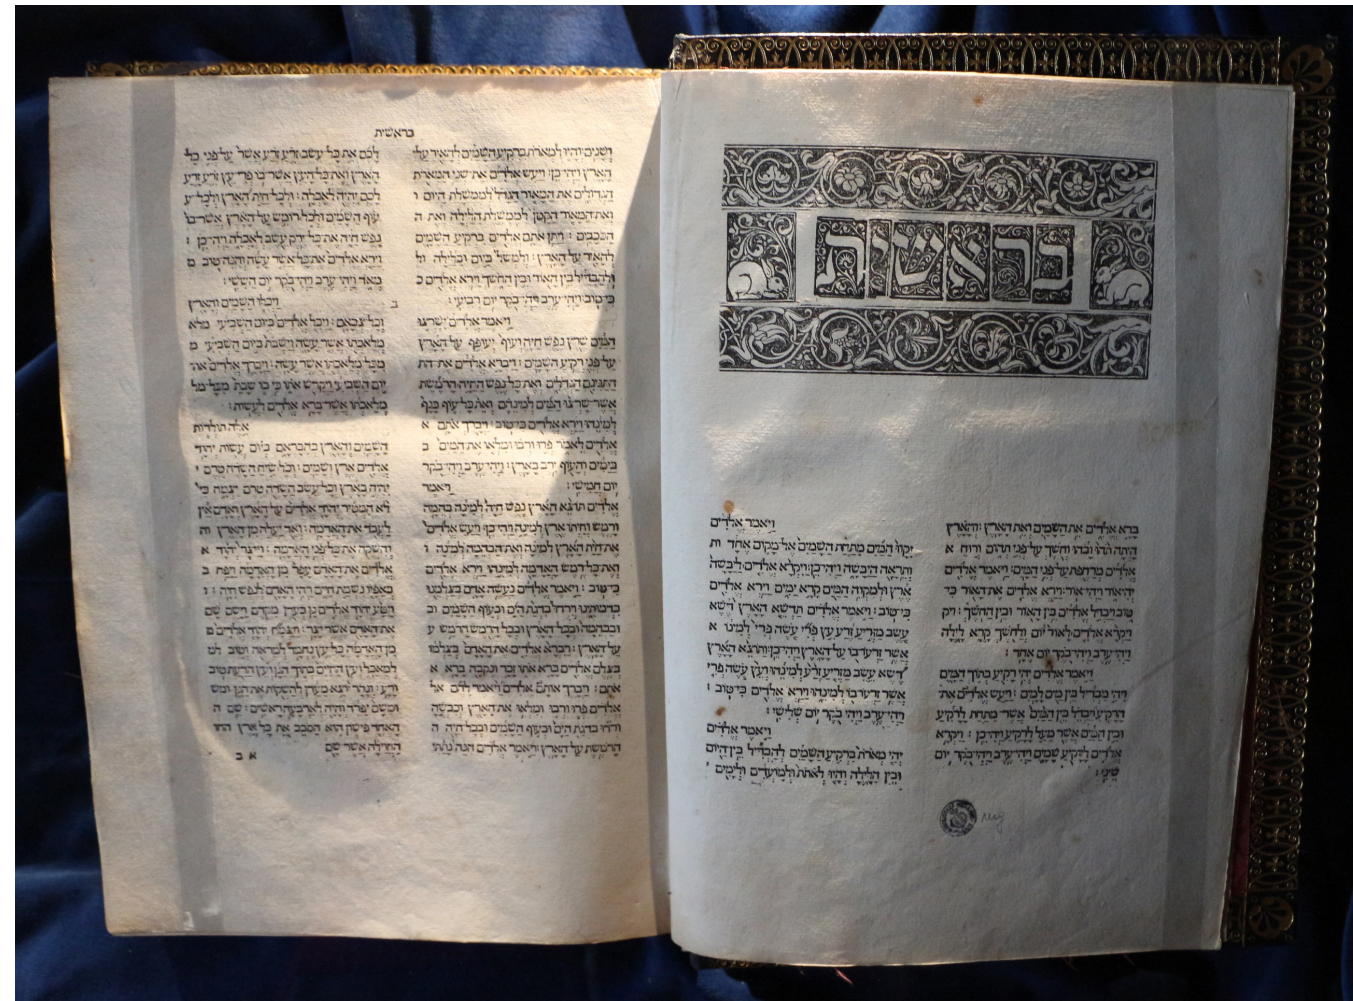 בראשית
ברא אלדים את השמים ואת הארץ : והארץ
היתה תהו ובהו וחשך על פני תהום ורוח א
אלדים מרחפת על פני המים : ויאמר אלדים
יהי אור ויהי אור : וירא אלדים את האור כי
טוב ויבדל אלדים בין האור ובין החשך : ויק
ויקרא אלדים לאור יום ולחשך קרא לילה
ויהי ערב ויהי בקר יום אחד :
ויאמר אלדים יהי רקיע בתוך המים
ויהי מבדיל בין מים למים : ויעש אלדים את
הרקיע ויבדל בין המים אשר מתחת לרקיע
ובין המים אשר מעל לרקיע ויהי כן : ויקרא
אלדים לרקיע שמים ויהי ערב ויהי בקר יום
שני :
ויאמר אלדים
יקוו המים מתחת השמים אל מקום אחד ות
ותראה היבשה ויהי כן : ויקרא אלדים ליבשה
ארץ ולמקוה המים קרא ימים וירא אלדים
כי טוב : ויאמר אלדים תדשא הארץ דשא
עשב מזריע זרע עץ פרי עשה פרי למינו א
אשר זרעו בו על הארץ ויהי כן : ותוצא הארץ
דשא עשב מזריע זרע למינהו ועץ עשה פרי
אשר זרעו בו למינהו וירא אלדים כי טוב :
ויהי ערב ויהי בקר יום שלישי :
ויאמר אלדים
יהי מארת ברקיע השמים להבדיל בין היום
ובין הלילה והיו לאתת ולמועדים ולימים
בראשית
ושנים : והיו למארת ברקיע השמים להאיר על
הארץ ויהי כן : ויעש אלדים את שני המארת
הגדולים את המאור הגדל לממשלת היום ו
ואת המאור הקטן לממשלת הלילה ואת ה
הככבים : ויתן אתם אלדים ברקיע השמים
להאיר על הארץ : ולמשל ביום ובלילה ול
ולהבדיל בין האור ובין החשך וירא אלדים כ
כי טוב : ויהי ערב ויהי בקר יום רביעי :
ויאמר אלדים ישרצו
המים שרץ נפש חיה ועוף יעופף על הארץ
על פני רקיע השמים : ויברא אלדים את הת
התנינם הגדלים ואת כל נפש החיה הרמשת
אשר שרצו המים למינהם ואת כל עוף כנף
למינהו וירא אלדים כי טוב : ויברך אתם א
אלדים לאמר פרו ורבו ומלאו את המים ב
בימים והעוף ירב בארץ : ויהי ערב ויהי בקר
יום חמישי : ויאמר
אלדים תוצא הארץ נפש חיה למינה בהמה
ורמש וחיתו ארץ למינה ויהי כן : ויעש אלדים
את חית הארץ למינה ואת הבהמה למינה ו
ואת כל רמש האדמה למינהו וירא אלדים
כי טוב : ויאמר אלדים נעשה אדם בצלמנו
כדמותינו וירדו בדגת הים ובעוף השמים וב
ובבהמה ובכל הארץ ובכל הרמש הרמש ע
על הארץ : ויברא אלדים את האדם בצלמו
בצלם אלדים ברא אתו זכר ונקבה ברא א
אתם : ויברך אותם אלדים ויאמר להם אל
אלדים פרו ורבו ומלאו את הארץ וכבשה
ורדו בדגת הים ובעוף השמים ובכל חיה ה
הרמשת על הארץ : ויאמר אלדים הנה נתתי
לכם את כל עשב זרע זרע אשר על פני כל
הארץ ואת כל העץ אשר בו פרי עץ זרע זרע
לכם יהיה לאכלה : ולכל חית הארץ ולכל ע
עוף השמים ולכל רומש על הארץ אשר בו
נפש חיה את כל ירק עשב לאכלה ויהי כן :
וירא אלדים את כל אשר עשה והנה טוב מ
מאד ויהי ערב ויהי בקר יום הששי :
ב ויכלו השמים והארץ
וכל צבאם : ויכל אלדים ביום השביעי מלא
מלאכתו אשר עשה וישבת ביום השביעי מ
מכל מלאכתו אשר עשה : ויברך אלדים את
יום השביעי ויקדש אתו כי בו שבת מכל מל
מלאכתו אשר ברא אלדים לעשות :
אלה תולדות
השמים והארץ בהבראם ביום עשות יהוד
אלדים ארץ ושמים : וכל שיח השדה טרם י
יהיה בארץ וכל עשב השדה טרם יצמח כי
לא המטיר יהוד אלדים על הארץ ואדם אין
לעבד את האדמה : ואד יעלה מן הארץ וה
והשקה את כל פני האדמה : וייצר יהוד א
אלדים את האדם עפר מן האדמה ויפח ב
באפיו נשמת חיים ויהי האדם לנפש חיה : ו
ויטע יהוד אלדים גן בעדן מקדם וישם שם
את האדם אשר יצר : ויצמח יהוד אלדים מ
מן האדמה כל עץ נחמד למראה וטוב למ
למאכל ועץ החיים בתוך הגן ועץ הדעת טוב
ורע : ונהר יוצא מעדן להשקות את הגן ומש
ומשם יפרד והיה לארבעה ראשים : שם ה
האחד פישון הוא הסבב את כל ארץ החו
החוילה אשר שם
א ב